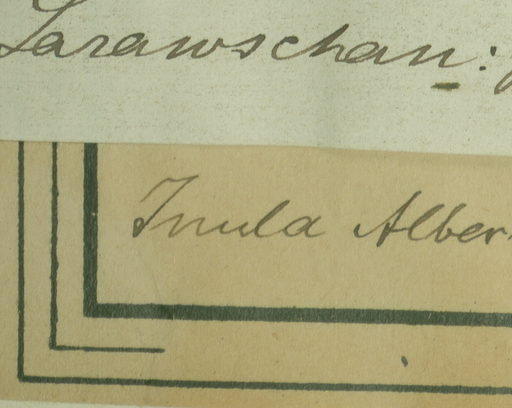 Sarawschan:
Inula Alber